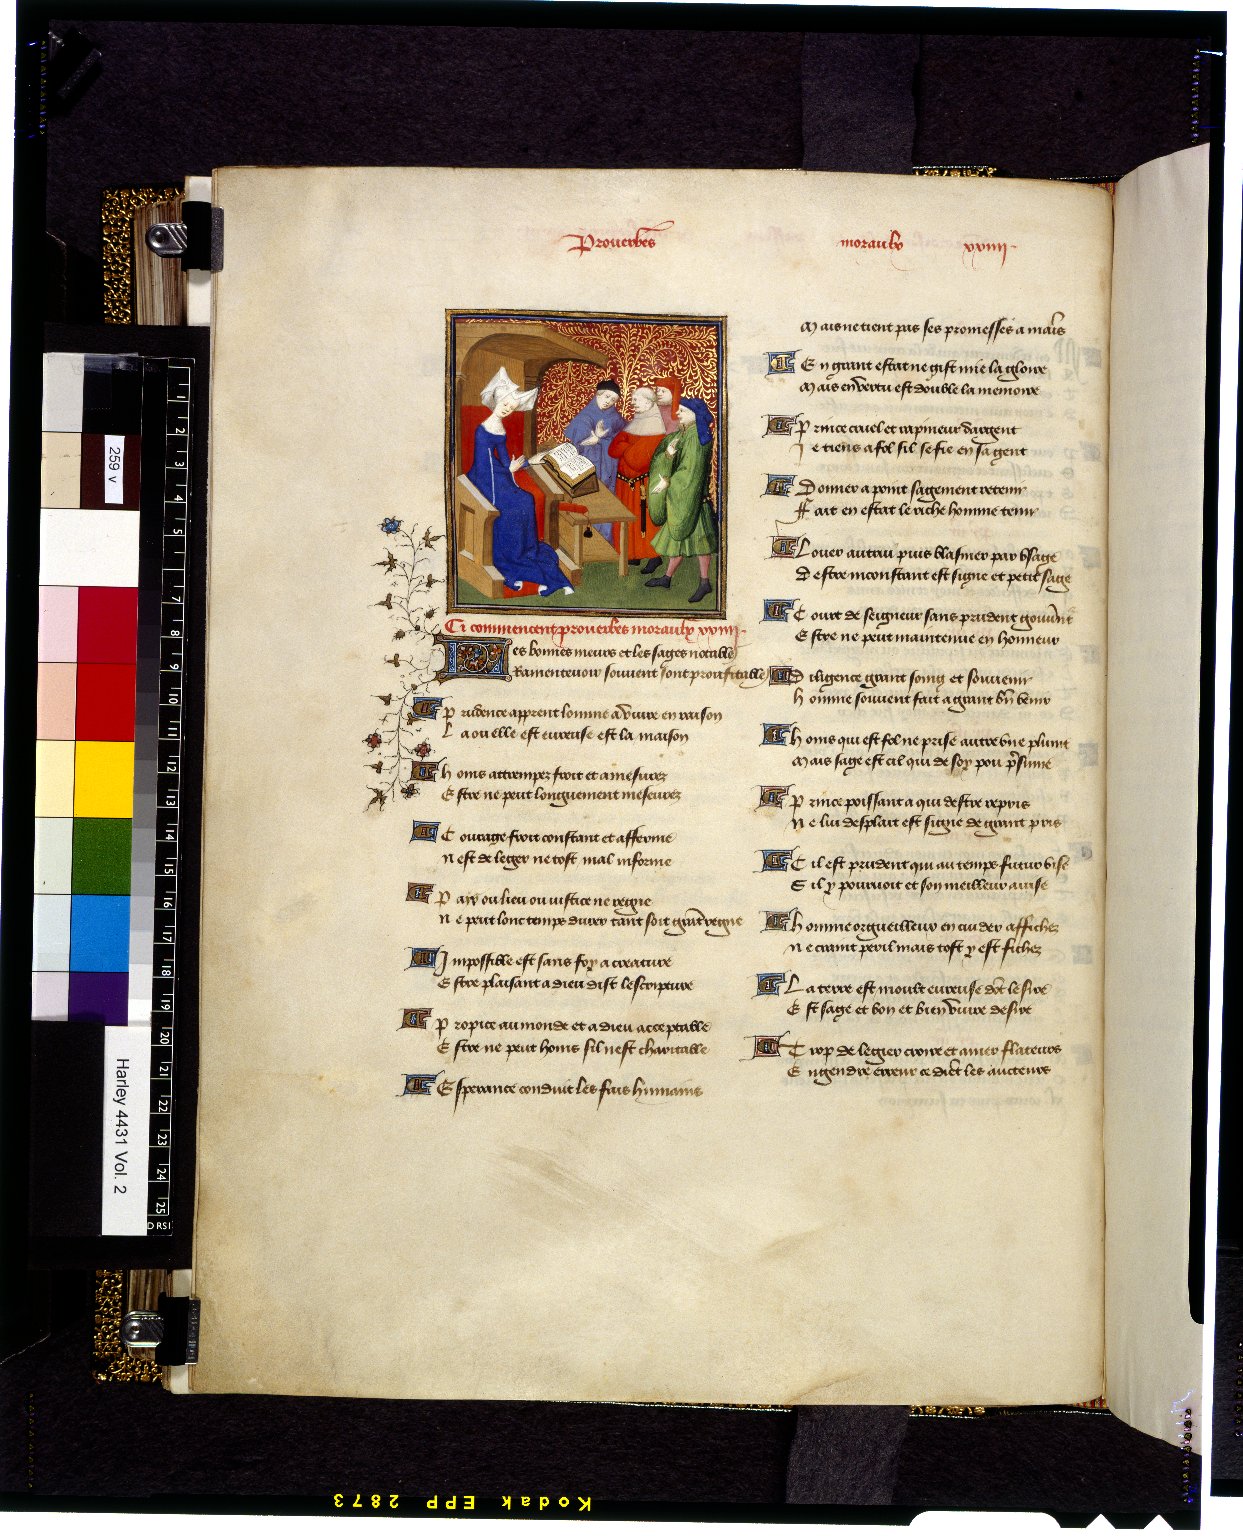 Prouerbes moraulx xxiiij.
Ci commencent prouerbes moraulx xxiiij.
Les bonnes meurs et les sages notables
Ramenteuoir souuent sont prouffitables
Prudence apprent lomme a viure en raison
La ou elle est eureuse est la maison
Homs attrempez froit et amesurez
Estre ne peut longuement meseurez
Courage froit constant et afferme
Nest de legier ne tost mal informe
Pays ou lieu ou iustice ne regne
Ne peut long temps durer tant soit grant regne
Impossible est sans foy a creature
Estre plaisant a dieu dist lescripture
Propice au monde et a dieu acceptable
Estre ne peut homs sil nest charitable
Esperance conduit les fais humains
Mais ne tient pas ses promesses a mains
En grant estat ne gist mie la gloire
Mais en vertu est double la memoire
Prince cruel et rapineur dargent
Je tiens a fol sil se fie en sa gent
Donner a point sagement retenir
Fait en estat le riche homme tenir
Louer autrui puis blasmer par vsage
Destre inconstant est signe et petit sage
Court de seigneur sans prudent gouuerneur
Estre ne peut maintenue en honneur
Diligence grant soing et souuenir
Homme souuent fait a grant bien venir
Homs qui est fol ne prise autre vne plume
Mais sage est cil qui de soy pou presume
Prince poissant a qui destre repris
Ne lui desplait est signe de grant pris
Cil est prudent qui au temps futur vise
Sil y pouruoit et son meilleur auise
Homme orgueilleux en cuider affichez
Ne craint peril mais tost y est fichez
La terre est moult eureuse dont le sire
Est sage et bon et bien viure desire
Trop de legier croire et amer flateurs
Engendre erreur ce dient les aucteurs
259 v
Harley 4431 Vol. 2
1
2
3
4
5
7
8
9
10
11
12
13
14
15
16
17
18
19
20
21
22
23
24
25
Kodak EPP 2873